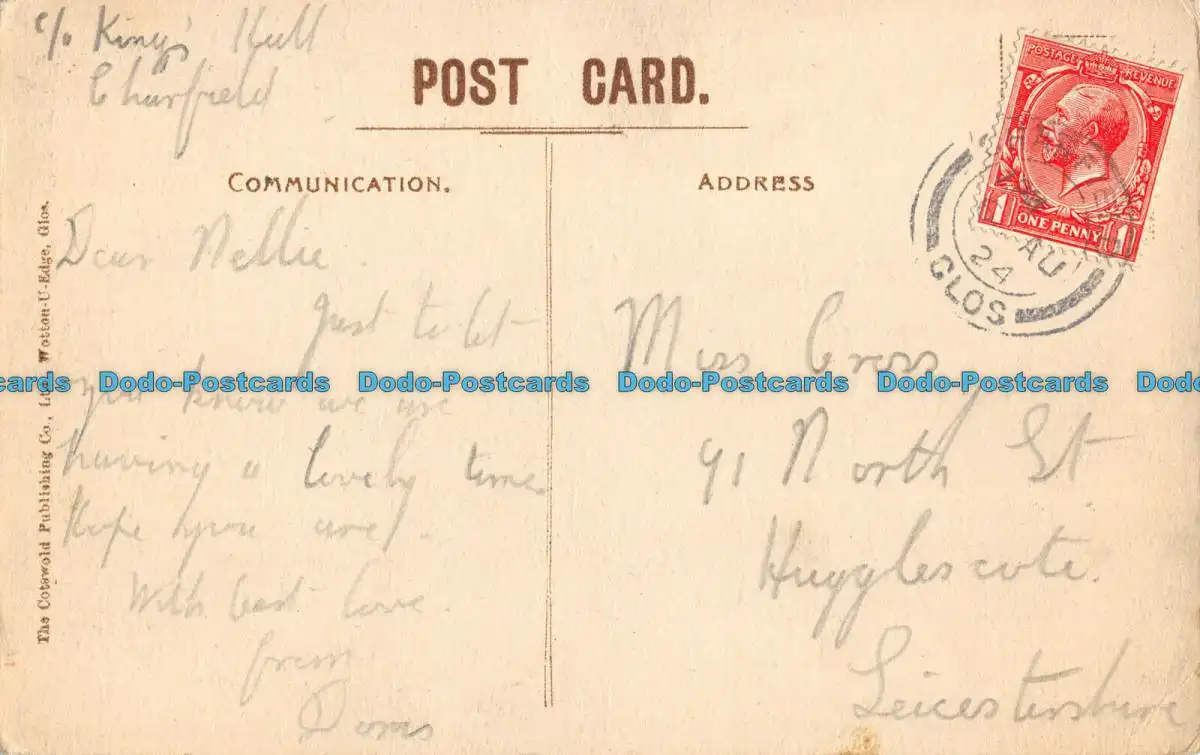 c/o King's Hill
Charfield
POST CARD.
COMMUNICATION.
ADDRESS
POSTAGE REVENUE
1 ONE PENNY 1
AU
24
GLOS
Dear Nellie.
Just to let
you know we are
having a lovely time
Hope you are.
With best love.
from
Doris
Miss Cross
91 North St
Hugglescote.
Leicestershire
The Cotswold Publishing Co., Ltd. Wotton-U-Edge, Glos.
Dodo-Postcards Dodo-Postcards Dodo-Postcards Dodo-Postcards